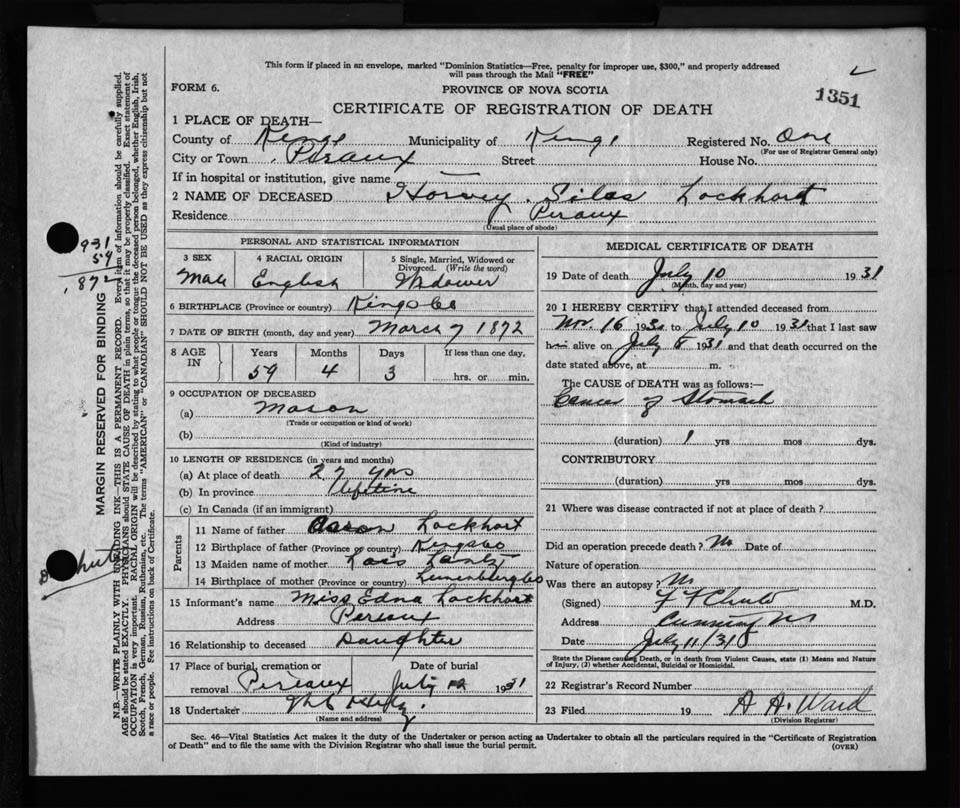 This form if placed in an envelope, marked "Dominion Statistics—Free, penalty for improper use, $300," and properly addressed
will pass through the Mail "FREE"
FORM 6.
PROVINCE OF NOVA SCOTIA
1351
CERTIFICATE OF REGISTRATION OF DEATH
1 PLACE OF DEATH—
County of Kings Municipality of Kings Registered No. One
(For use of Registrar General only)
City or Town Peraux Street House No.
If in hospital or institution, give name —
2 NAME OF DECEASED Harvey Silas Lockhart
Residence Peraux
(Usual place of abode)
PERSONAL AND STATISTICAL INFORMATION
3 SEX 4 RACIAL ORIGIN 5 Single, Married, Widowed or
Divorced. (Write the word)
Male English Widower
6 BIRTHPLACE (Province or country) Kings Co
7 DATE OF BIRTH (month, day and year) March 7 1872
8 AGE IN Years Months Days If less than one day,
59 4 3 hrs. or min.
9 OCCUPATION OF DECEASED
(a) Mason
(Trade or occupation or kind of work)
(b)
(Kind of industry)
10 LENGTH OF RESIDENCE (in years and months)
(a) At place of death 27 yrs
(b) In province lifetime
(c) In Canada (if an immigrant)
Parents
11 Name of father Lockhart
12 Birthplace of father (Province or country) Kings Co
13 Maiden name of mother Lois Lantz
14 Birthplace of mother (Province or country) Lunenburg Co
15 Informant's name Miss Edna Lockhart
Address Peraux
16 Relationship to deceased Daughter
17 Place of burial, cremation or Date of burial
removal Pereaux July 12 1931
18 Undertaker
(Name and address)
MEDICAL CERTIFICATE OF DEATH
19 Date of death July 10 1931
(Month, day and year)
20 I HEREBY CERTIFY that I attended deceased from
Nov. 16 1930 to July 10 1931 that I last saw
h alive on July 8 1931 and that death occurred on the
date stated above, at m.
The CAUSE OF DEATH was as follows:—
Cancer of Stomach
(duration) 1 yrs mos dys.
CONTRIBUTORY
(duration) yrs mos dys.
21 Where was disease contracted if not at place of death?
Did an operation precede death? No Date of
Nature of operation
Was there an autopsy? No
(Signed) F F Chute M.D.
Address Canning NS
Date July 11/31
State the Disease causing Death, or in death from Violent Causes, state (1) Means and Nature
of Injury, (2) whether Accidental, Suicidal or Homicidal.
22 Registrar's Record Number
23 Filed 19 A A. Ward
(Division Registrar)
Sec. 46—Vital Statistics Act makes it the duty of the Undertaker or person acting as Undertaker to obtain all the particulars required in the "Certificate of Registration
of Death" and to file the same with the Division Registrar who shall issue the burial permit.
(OVER)
931
59
1872
MARGIN RESERVED FOR BINDING
N.B.—WRITE PLAINLY WITH UNFADING INK—THIS IS A PERMANENT RECORD. Every item of information should be carefully supplied.
AGE should be stated EXACTLY. PHYSICIANS should STATE CAUSE OF DEATH in plain terms, so that it may be properly classified. Exact statement of
OCCUPATION is very important. RACIAL ORIGIN will be described by stating to what people or tongue the deceased person belonged, whether English, Irish,
Scotch, French, German, Russian, Ruthenian, etc. The terms "AMERICAN" or "CANADIAN" SHOULD NOT BE USED as they express citizenship but not
a race or people. See instructions on back of Certificate.